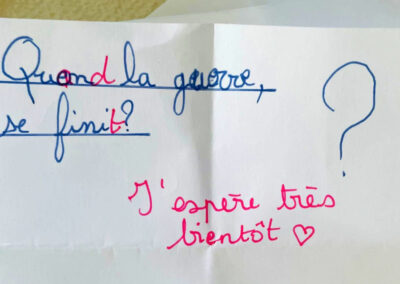 Quand la guerre,
se finit?
?
J'espère très
bientôt ♡